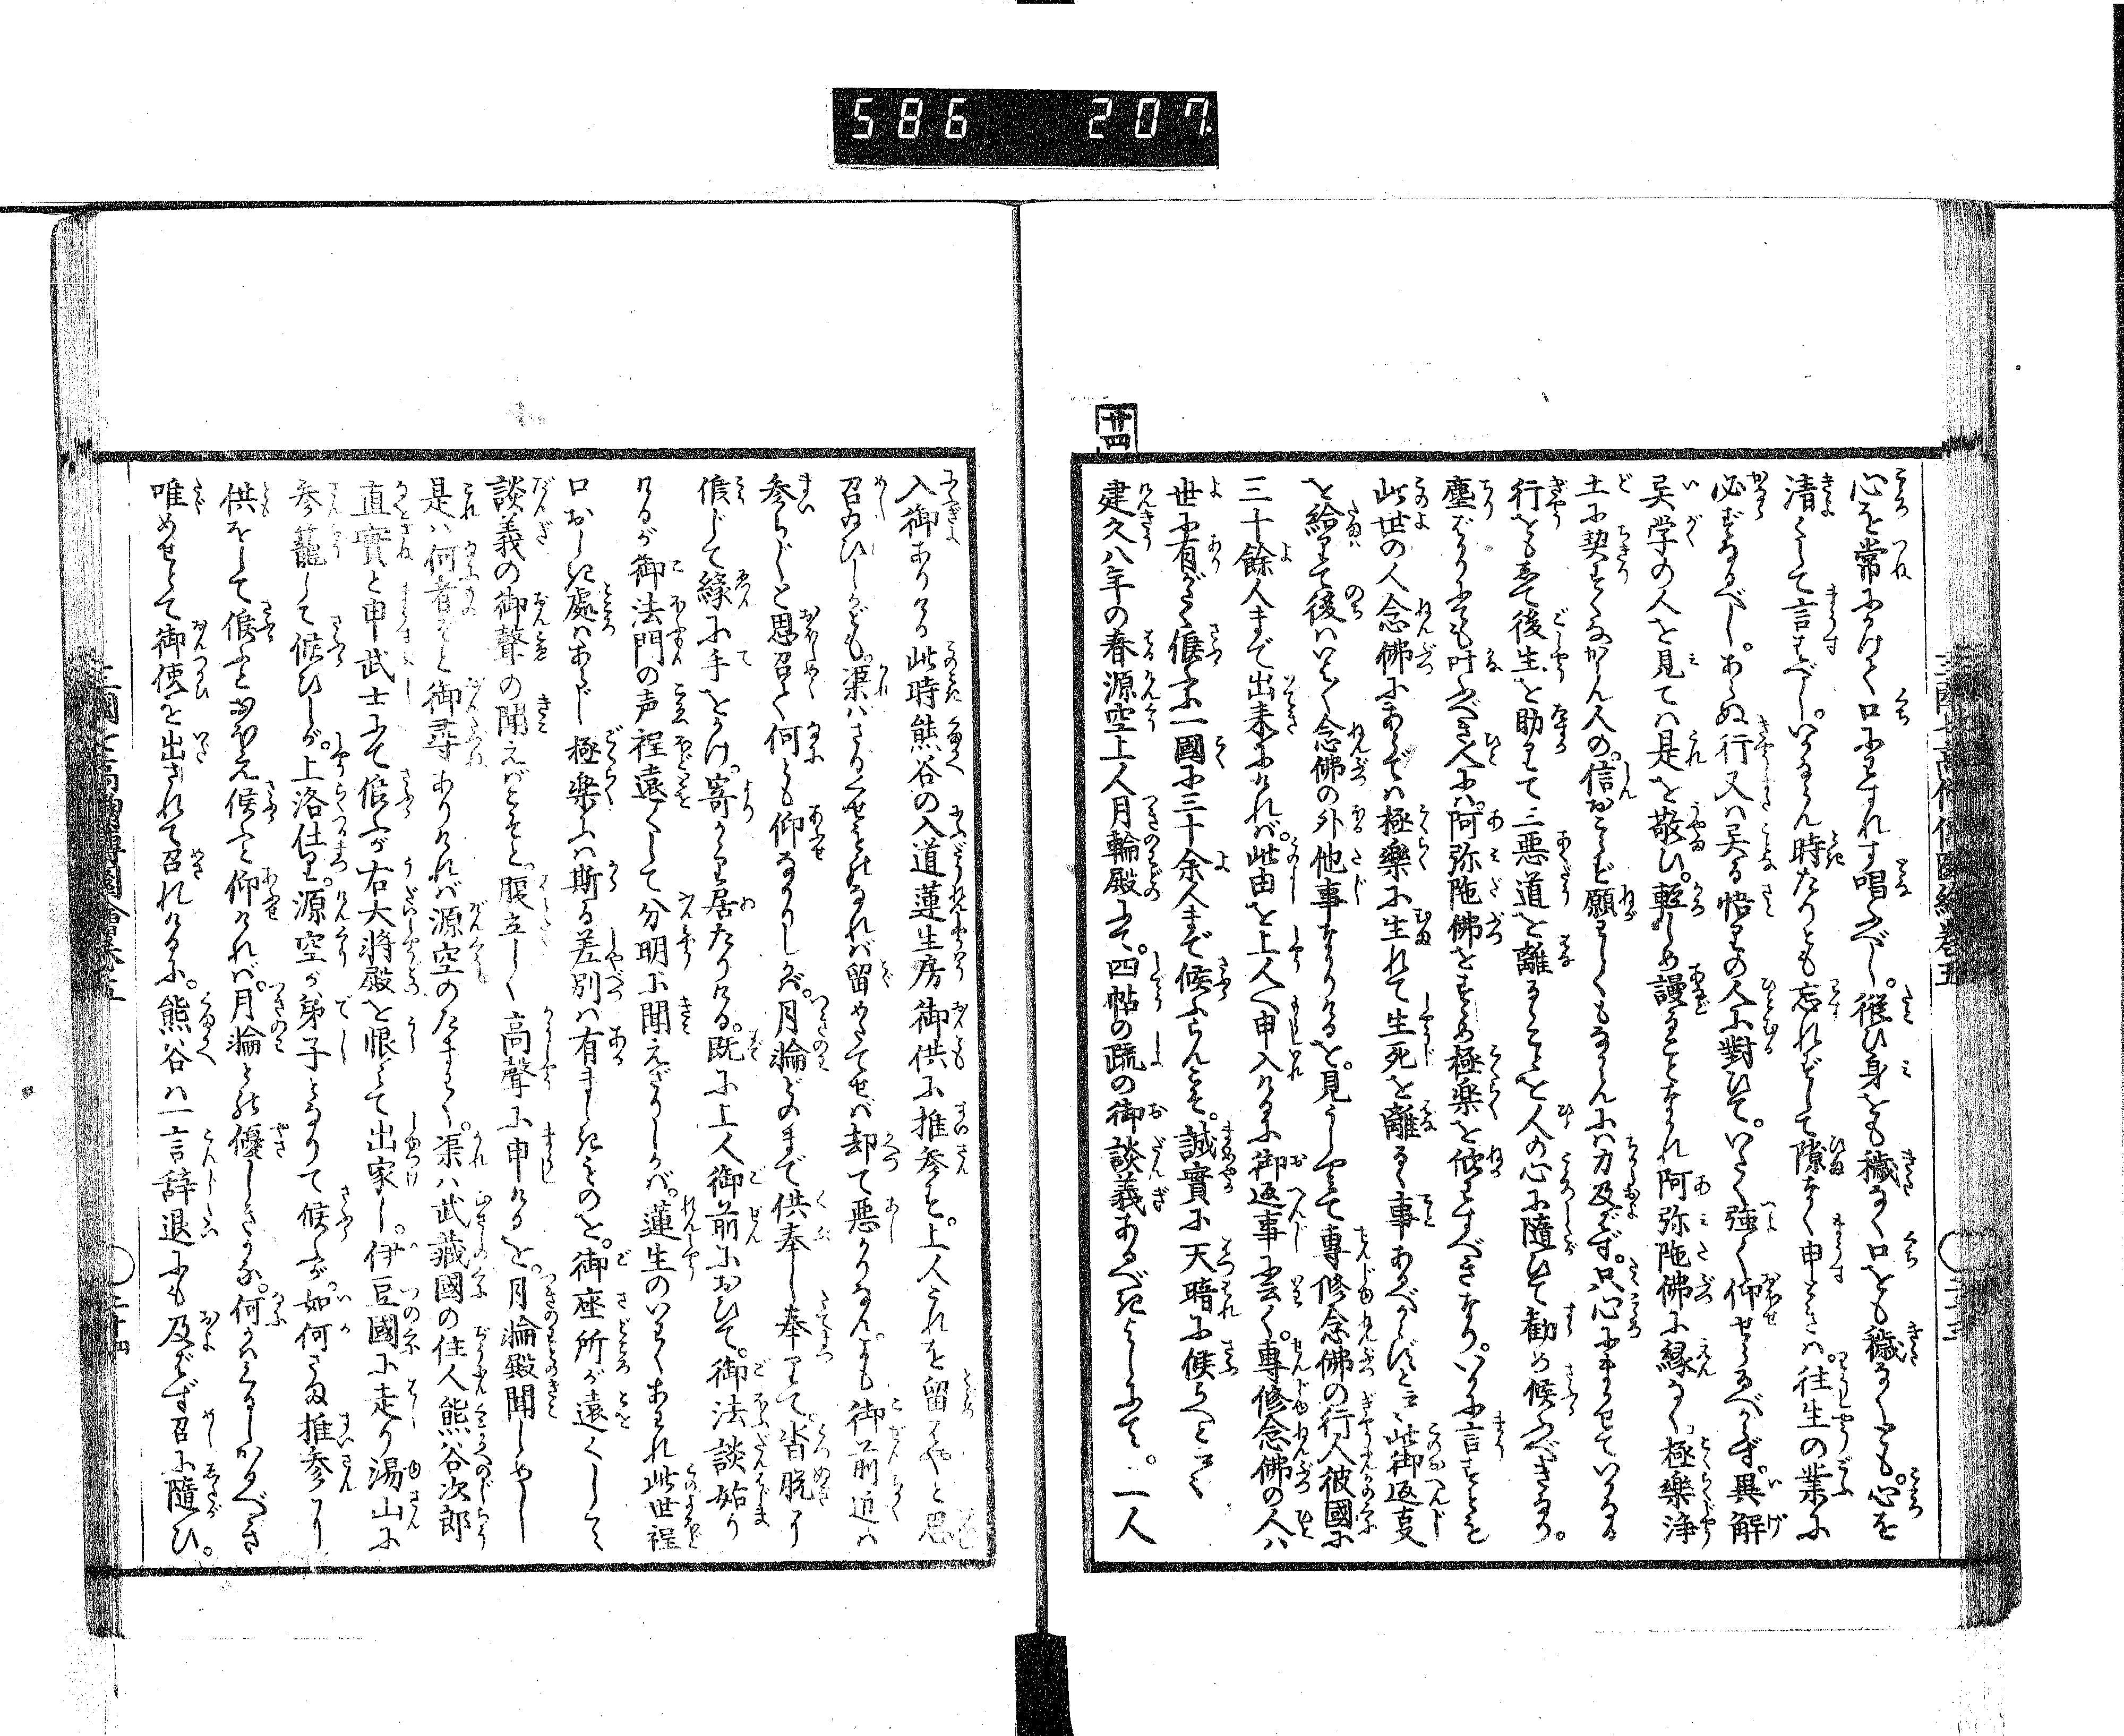 586 207
三國七高僧傳圖繪卷五
心を常にかけて口にわすれす唱ふべし。縦ひ身をも穢なく口をも穢なくとも。心を
清くして言すべし。いかならん時たりとも忘れずして隙なく申ときハ。往生の業に
必ずなるべし。あらぬ行又ハ異る悟りの人に對ひて。いたく強く仰せらるべからず。異解
異学の人を見てハ是を敬ひ。軽しめ謾ることなかれ阿弥陀佛に縁なく。極樂浄
土に契りすくなからん人の。信おこらず願ハしくもなからんにハ力及バず。只心にまかせていかなる
行をもして後生を助りて三悪道を離るることを人の心に隨ひて勧め候ふべきなり。
塵ばかりにても叶ふべき人にハ。阿弥陀佛をすすめ極楽を欣ハすべきなり。いかに言すとも
此世の人念佛にあらでハ極樂に生れて生死を離るる事あるべからずと云々此御返事
を給りて後ハいよいよ念佛の外他事なかりけるを。見うらやミて専修念佛の行人彼國に
三十餘人まで出来にけれバ。此由を上人へ申入けるに御返事に云く。專修念佛の人ハ
世に有がたく候ふに一國に三十余人まで候ふらんこそ。誠實に天晴に候らへと云々
廿四
建久八年の春源空上人月輪殿にて。四帖の疏の御談義あるべきよしにて。二人
入御ありける此時熊谷の入道蓮生房御供に推参す。上人これを留ばやと思
召給ひしかども。渠ハさるくせものなれバ留めたてせバ却て悪かりなん。よも御前迄ハ
参らじと思召て何とも仰なかりしが。月輪どのまで供奉し奉りて。沓脱に
候じて縁に手をかけ。寄かかり居たりける。既に上人御前において。御法談始り
けるが御法門の声程遠くして分明に聞えざりしかバ。蓮生のいハくあハれ此世程
口おしき處ハあらじ極楽にハ斯る差別ハ有ましきものを。御座所が遠くして
談義の御聲の聞えバこそと。腹立しく高聲に申けるを。月輪殿聞しめし
是ハ何者ぞと御尋ありけれバ源空のたまハく。渠ハ武藏國の住人熊谷次郎
直實と申武士にて候ふが右大将殿を恨ミて出家し。伊豆國に走り湯山に
参籠して候ひしが。上洛仕り。源空が弟子となりて候ふが。如何さま推参に
供をして候ふとおぼえ候ふと仰けれバ。月輪どの優しきかな。何かハくるしかるべき
唯めせとて御使を出されて召れけるに。熊谷ハ一言辞退にも及バず召に隨ひ。
三國七高僧傳圖會卷五
二十四